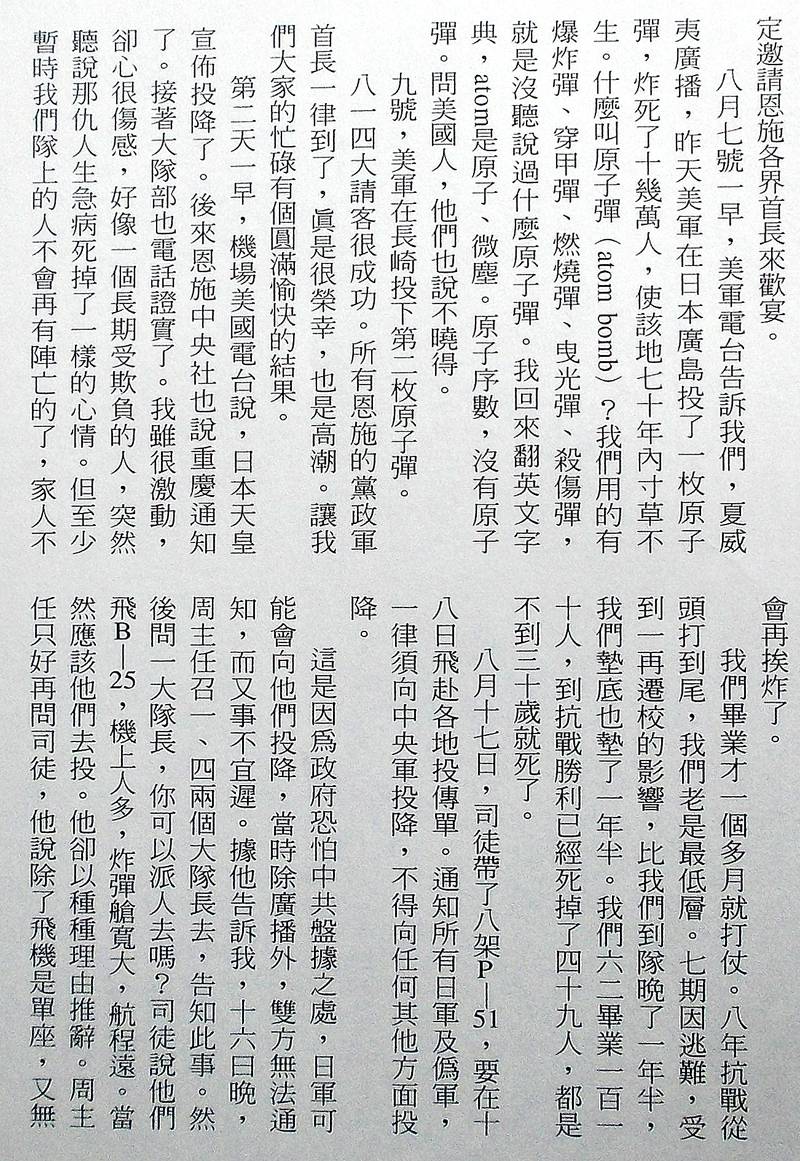 定邀請恩施各界首長來歡宴。
八月七號一早，美軍電台告訴我們，夏威
夷廣播，昨天美軍在日本廣島投了一枚原子
彈，炸死了十幾萬人，使該地七十年內寸草不
生。什麼叫原子彈（atom bomb）？我們用的有
爆炸彈、穿甲彈、燃燒彈、曳光彈、殺傷彈，
就是沒聽說過什麼原子彈。我回來翻英文字
典，atom是原子、微塵。原子序數，沒有原子
彈。問美國人，他們也說不曉得。
九號，美軍在長崎投下第二枚原子彈。
八一四大請客很成功。所有恩施的黨政軍
首長一律到了，眞是很榮幸，也是高潮。讓我
們大家的忙碌有個圓滿愉快的結果。
第二天一早，機場美國電台說，日本天皇
宣佈投降了。後來恩施中央社也說重慶通知
了。接著大隊部也電話證實了。我雖很激動，
卻心很傷感，好像一個長期受欺負的人，突然
聽說那仇人生急病死掉了一樣的心情。但至少
暫時我們隊上的人不會再有陣亡的了，家人不
會再挨炸了。
我們畢業才一個多月就打仗。八年抗戰從
頭打到尾，我們老是最低層。七期因逃難，受
到一再遷校的影響，比我們到隊晚了一年半，
我們墊底也墊了一年半。我們六二畢業一百一
十人，到抗戰勝利已經死掉了四十九人，都是
不到三十歲就死了。
八月十七日，司徒帶了八架P—51，要在十
八日飛赴各地投傳單。通知所有日軍及僞軍，
一律須向中央軍投降，不得向任何其他方面投
降。
這是因爲政府恐怕中共盤據之處，日軍可
能會向他們投降，當時除廣播外，雙方無法通
知，而又事不宜遲。據他告訴我，十六日晚，
周主任召一、四兩個大隊長去，告知此事。然
後問一大隊長，你可以派人去嗎？司徒說他們
飛B—25，機上人多，炸彈艙寬大，航程遠。當
然應該他們去投。他卻以種種理由推辭。周主
任只好再問司徒，他說除了飛機是單座，又無